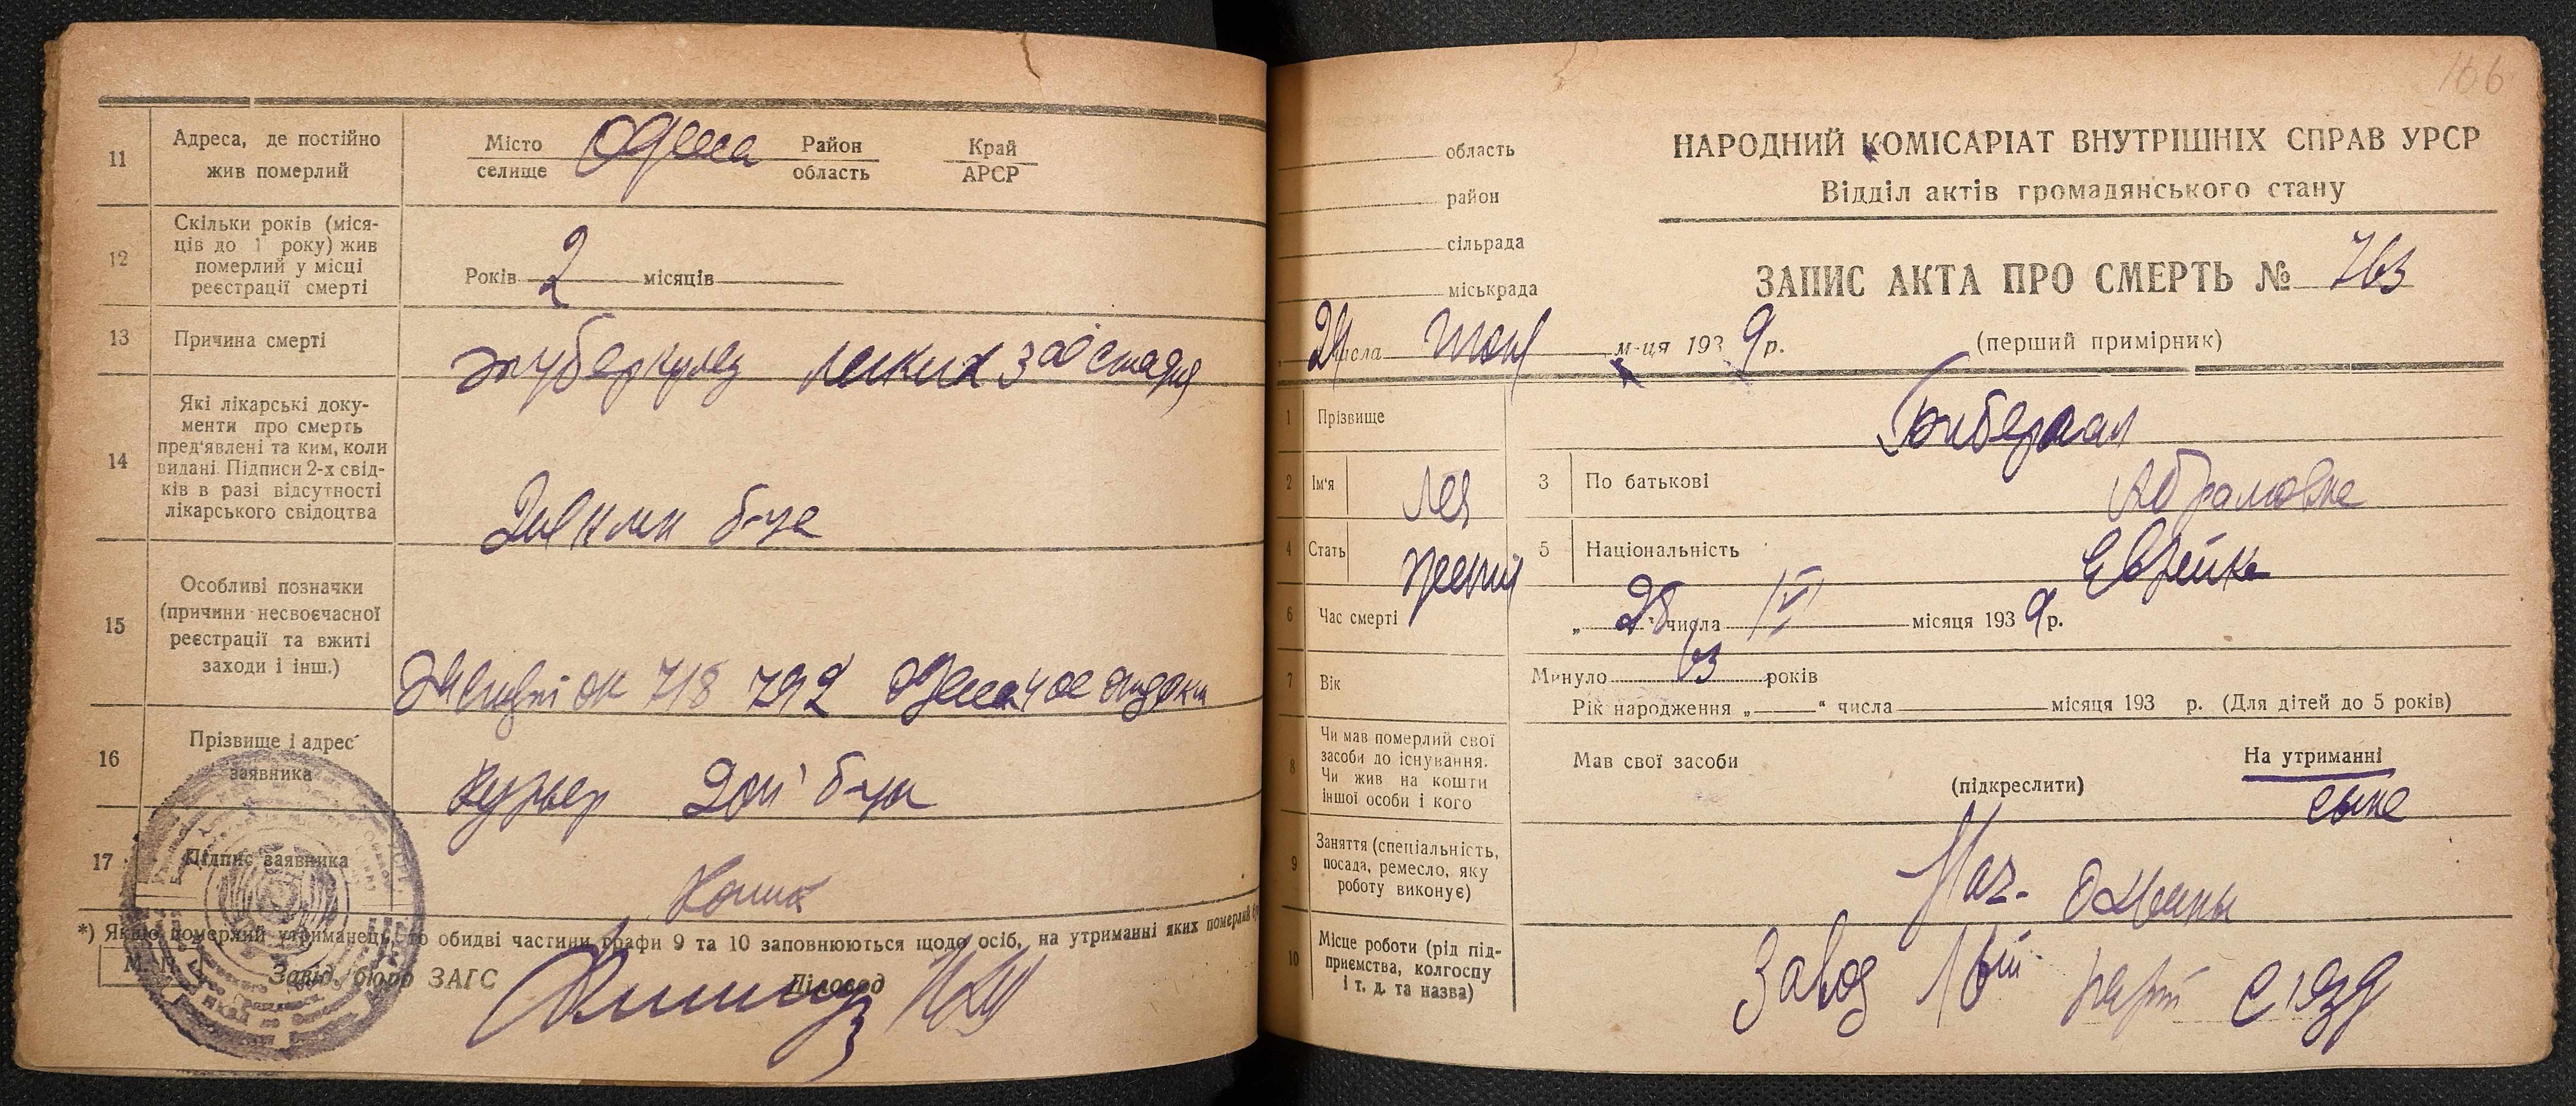 11
Адреса, де постійно
жив померлий
Місто
селище
Одеса
Район
область
Край
АРСР
12
Скільки років (міся-
ців до 1 року) жив
померлий у місці
реєстрації смерті
Років 2 місяців
13
Причина смерті
туберкулез легких 3ая стадия
14
Які лікарські доку-
менти про смерть
пред'явлені та ким, коли
видані. Підписи 2-х свід-
ків в разі відсутності
лікарського свідоцтва
б-ца
15
Особливі позначки
(причини несвоєчасної
реєстрації та вжиті
заходи і інш.)
718 792
16
Прізвище і адрес
заявника
курьер б-цы
17
Підпис заявника
*) Якщо померлий утриманець, то обидві частини графи 9 та 10 заповнюються щодо осіб, на утриманні яких померлий
М. П.
Завід. бюро ЗАГС
Діловод
166
область
район
сільрада
міськрада
числа м-ця 1939 р.
НАРОДНИЙ КОМІСАРІАТ ВНУТРІШНІХ СПРАВ УРСР
Відділ актів громадянського стану
ЗАПИС АКТА ПРО СМЕРТЬ № 763
(перший примірник)
1
Прізвище
Биберман
2
Ім'я
Лея
3
По батькові
Абрамовна
4
Стать
5
Національність
Еврейка
6
Час смерті
„ 28 " числа місяця 1939 р.
7
Вік
Минуло 63 років
Рік народження „ " числа місяця 193 р. (Для дітей до 5 років)
8
Чи мав померлий свої
засоби до існування.
Чи жив на кошти
іншої особи і кого
Мав свої засоби
(підкреслити)
На утриманні
сына
9
Заняття (спеціальність,
посада, ремесло, яку
роботу виконує)
Нач. охраны
10
Місце роботи (рід під-
приємства, колгоспу
і т. д. та назва)
Завод парт с'езд